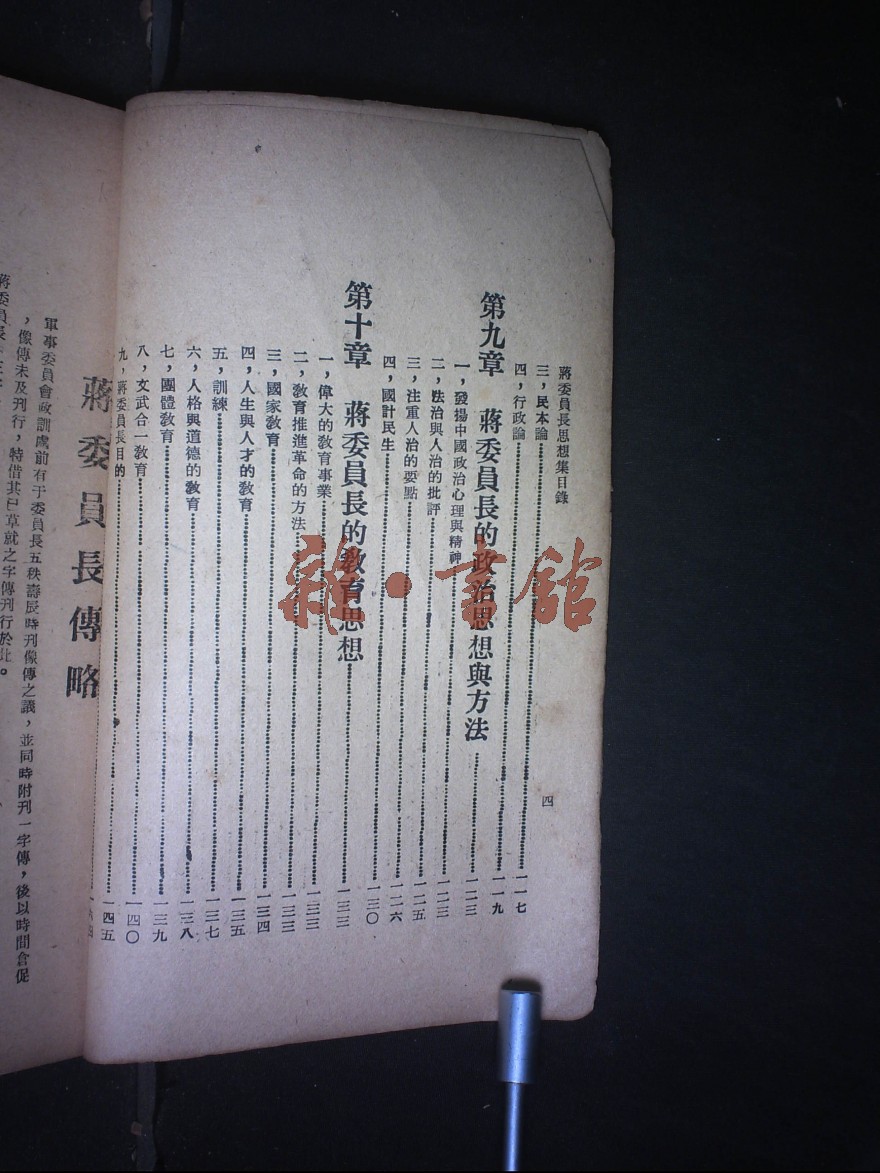 蔣委員長思想集目錄
四
三，民本論……一一七
四，行政論……一一九
第九章　蔣委員長的政治思想與方法……一二三
一，發揚中國政治心理與精神……一二三
二，法治與人治的批評……一二五
三，注重人治的要點……一二六
四，國計民生……一三〇
第十章　蔣委員長的教育思想……一三三
一，偉大的教育事業……一三三
二，教育推進革命的方法……一三三
三，國家教育……一三四
四，人生與人才的教育……一三五
五，訓練……一三七
六，人格與道德的教育……一三八
七，團體教育……一三九
八，文武合一教育……一四〇
九，蔣委員長目的……一四五
蔣委員長傳略
軍事委員會政訓處前有于委員長五秩壽辰時刊像傳之議，並同時附刊一字傳，後以時間倉促
，像傳未及刊行，特借其已草就之字傳刊行於此。
蔣委員長
雜·書館